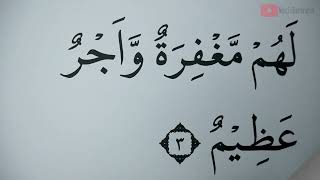 لَهُمْ مَّغْفِرَةٌ وَّاَجْرٌ
عَظِيْمٌ ٣